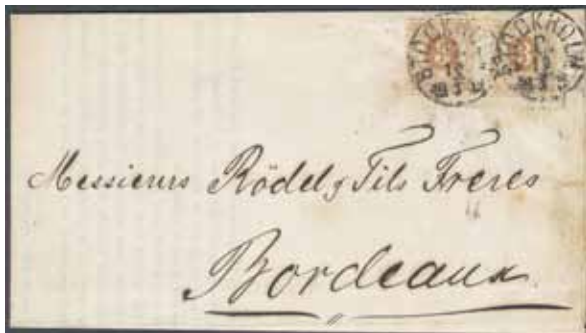 STOCKHOLM
Messieurs Rödel & Fils Freres
Bordeaux